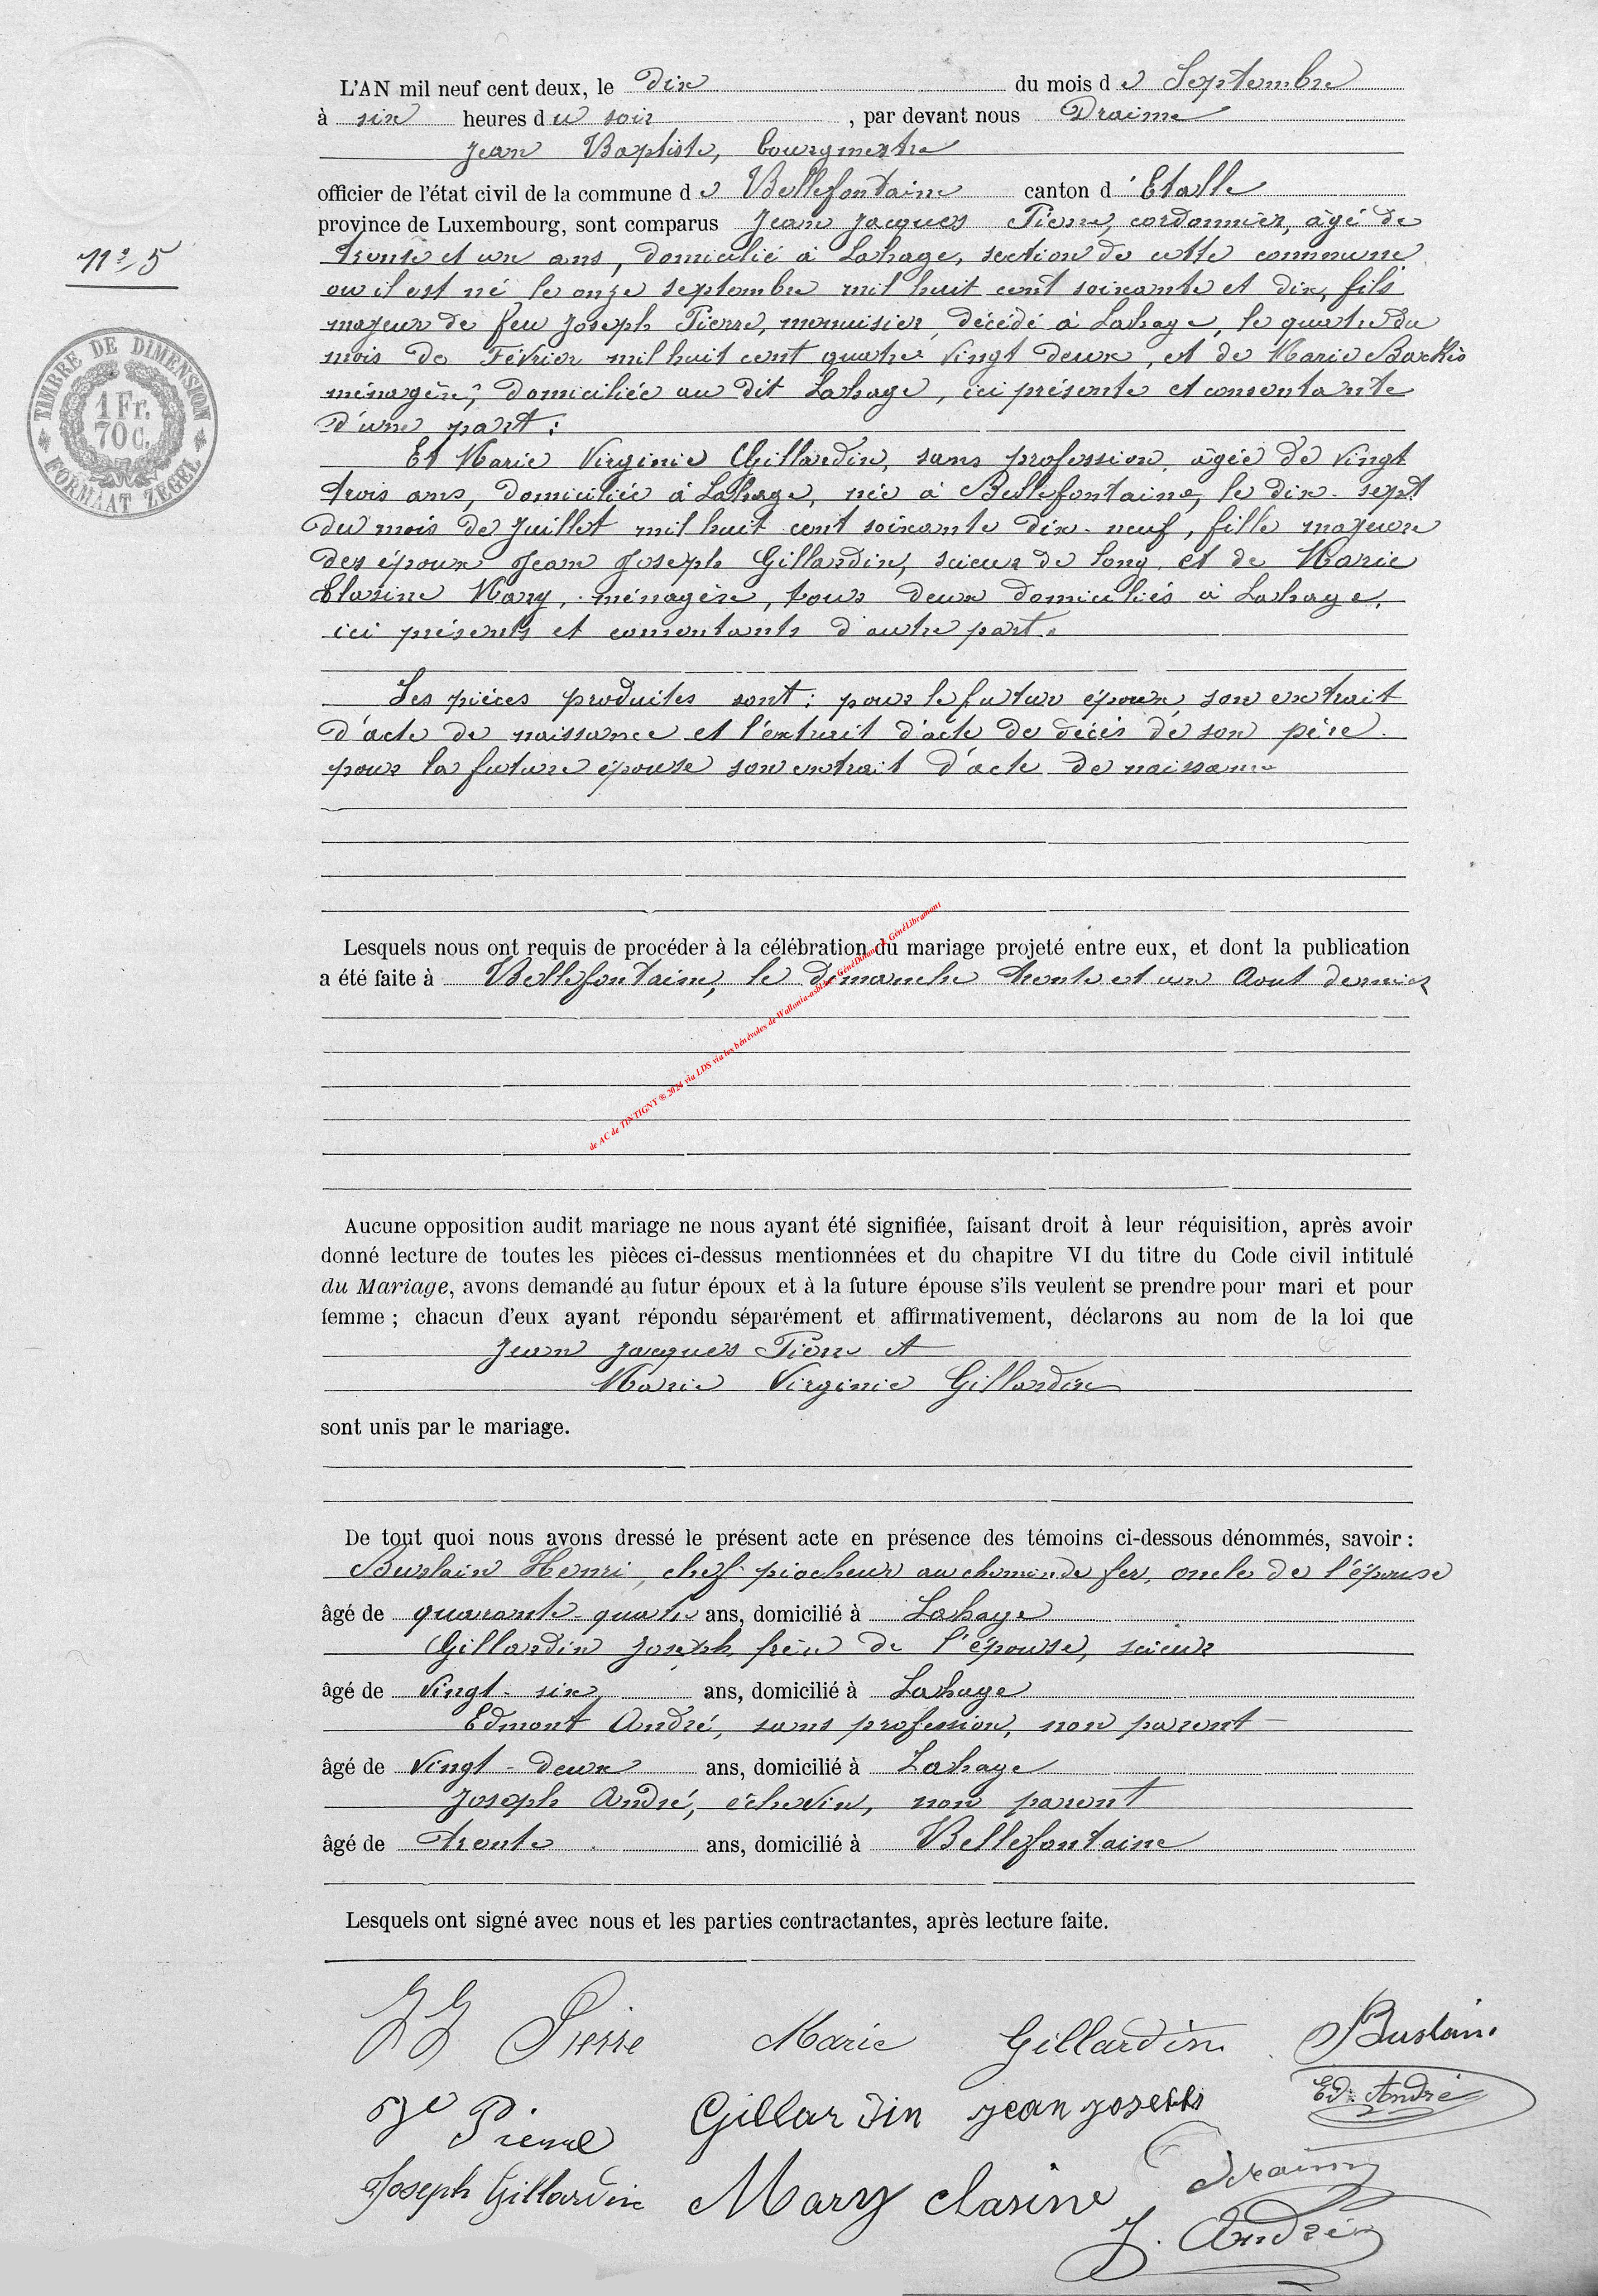 L'AN mil neuf cent deux, le dix du mois de Septembre
à six heures du soir, par devant nous Draime
Jean Baptiste, bourgmestre
officier de l'état civil de la commune de Bellefontaine canton d'Etalle
province de Luxembourg, sont comparus Jean Jacques Pierre, cordonnier, âgé de
trente et un ans, domicilié à Lahage, section de cette commune
où il est né le onze septembre mil huit cent soixante et dix, fils
majeur de feu Joseph Pierre, menuisier, décédé à Lahage, le quatre du
mois de Février mil huit cent quatre vingt deux, et de Marie
ménagère, domiciliée au dit Lahage, ici présente et consentante
d'une part :
Et Marie Virginie Gillardin, sans profession, âgée de vingt
trois ans, domiciliée à Lahage, née à Bellefontaine, le dix-sept
du mois de Juillet mil huit cent soixante dix-neuf, fille majeure
des époux Jean Joseph Gillardin, scieur de long, et de Marie
Clarine Mary, ménagère, tous deux domiciliés à Lahage,
ici présents et consentants d'autre part.
Les pièces produites sont : pour le futur époux, son extrait
d'acte de naissance et l'extrait d'acte de décès de son père.
pour la future épouse son extrait d'acte de naissance
Lesquels nous ont requis de procéder à la célébration du mariage projeté entre eux, et dont la publication
a été faite à Bellefontaine, le dimanche trente et un Aout dernier
Aucune opposition audit mariage ne nous ayant été signifiée, faisant droit à leur réquisition, après avoir
donné lecture de toutes les pièces ci-dessus mentionnées et du chapitre VI du titre du Code civil intitulé
du Mariage, avons demandé au futur époux et à la future épouse s'ils veulent se prendre pour mari et pour
femme ; chacun d'eux ayant répondu séparément et affirmativement, déclarons au nom de la loi que
Jean Jacques Pierre et
Marie Virginie Gillardin
sont unis par le mariage.
De tout quoi nous avons dressé le présent acte en présence des témoins ci-dessous dénommés, savoir :
Buslain Henri, chef piocheur au chemin de fer, oncle de l'épouse
âgé de quarante-quatre ans, domicilié à Lahage
Gillardin Joseph, frère de l'épouse, scieur
âgé de vingt-six ans, domicilié à Lahage
Edmont André, sans profession, non parent
âgé de vingt-deux ans, domicilié à Lahage
Joseph André, échevin, non parent
âgé de trente ans, domicilié à Bellefontaine
Lesquels ont signé avec nous et les parties contractantes, après lecture faite.
JJ Pierre Marie Gillardin Buslain
Pierre Gillardin jean joseph Ed. André
Joseph Gillardin Mary clarine Draime
J. André
n° 5
TIMBRE DE DIMENSION
1 Fr.
70 C.
FORMAAT ZEGEL
de AC de TINTIGNY ® 2024 via LDS via les bénévoles de Wallonia-asbl GénéLibramont